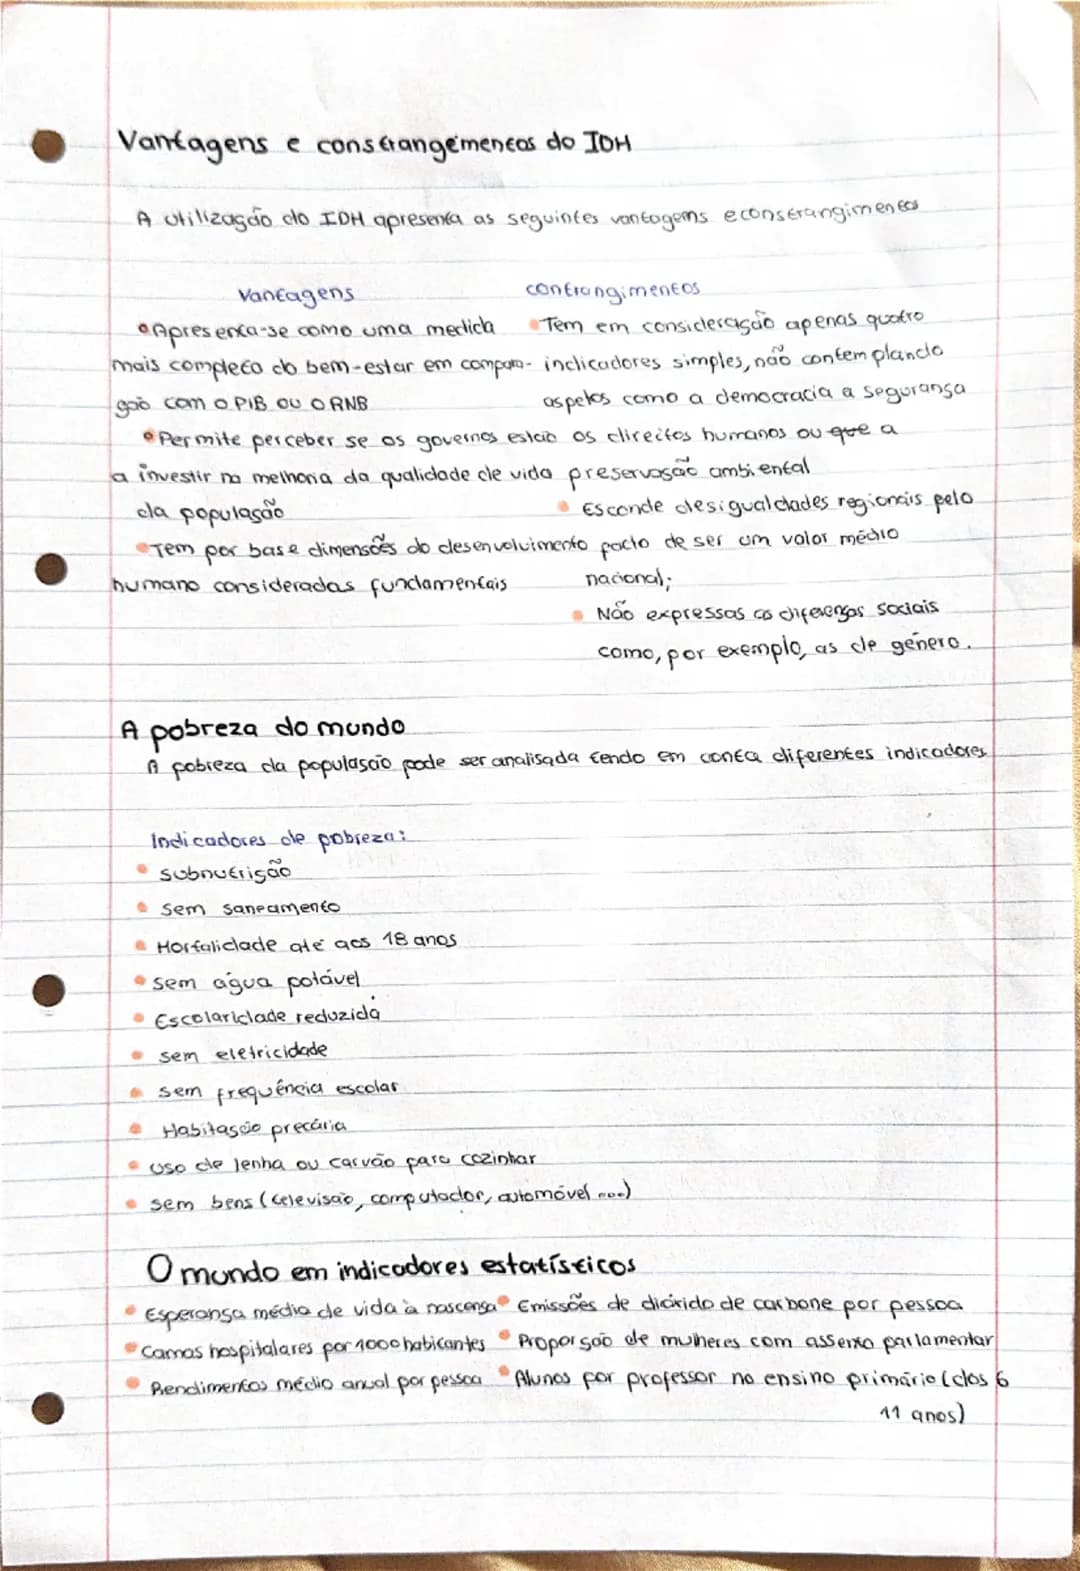 Vantagens e constrangementos do IDH
A utilização do IDH apresenta as seguintes vantagens e constrangimentos
Vantagens
• Apresenta-se como uma medida
mais completo do bem-estar em compara-
ção com o PIB ou o RNB
• Permite perceber se os governos estão
a investir na melhoria da qualidade de vida
da população
• Tem por base dimensões do desenvolvimento
humano consideradas fundamentais
contrangimentos
• Tem em consideração apenas quatro
indicadores simples, não contemplando
aspetos como a democracia a segurança
os direitos humanos ou que a
preservação ambiental
• Esconde desigualdades regionais pelo
facto de ser um valor médio
nacional;
• Não expressas as diferenças sociais
como, por exemplo, as de género.
A pobreza do mundo
A pobreza da população pode ser analisada tendo em conta diferentes indicadores
Indicadores de pobreza:
• subnutrição
• sem saneamento
• Mortalidade até aos 18 anos
• sem água potável
• Escolaridade reduzida
• sem eletricidade
• sem frequência escolar
• Habitação precária
• uso de lenha ou carvão para cozinhar
• sem bens (televisão, computador, automóvel ...)
O mundo em indicadores estatísticos
• Esperança média de vida à nascença
• Camas hospitalares por 1000 habitantes
• Rendimentos médio anual por pessoa
• Emissões de dióxido de carbone por pessoa
• Proporção de mulheres com assento parlamentar
• Alunos por professor no ensino primário (dos 6
11 anos)